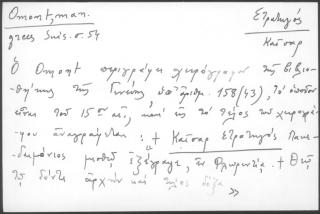 Omont, man.
Στρατηγός
grecs Suis. σ. 54
Καῖσαρ
Ὁ Omont περιγράφει χειρόγραφον τῆς βιβλιο-
-θήκης τῆς Γενεύης ὑπ' ἀριθμ. 158 (43), τὸ ὁποῖον
εἶναι τοῦ 15ου αἰ., καὶ εἰς τὸ τέλος τοῦ χειρογρά-
-φου ἀναγράφεται: + Καῖσαρ Στρατηγὸς Λακε-
-δαιμόνιος μισθῷ ἐξέγραψε, ἐν Φλωρεντίᾳ. + Θεῷ
τῷ δόντι ἀρχὴν καὶ τέλος δόξα
»